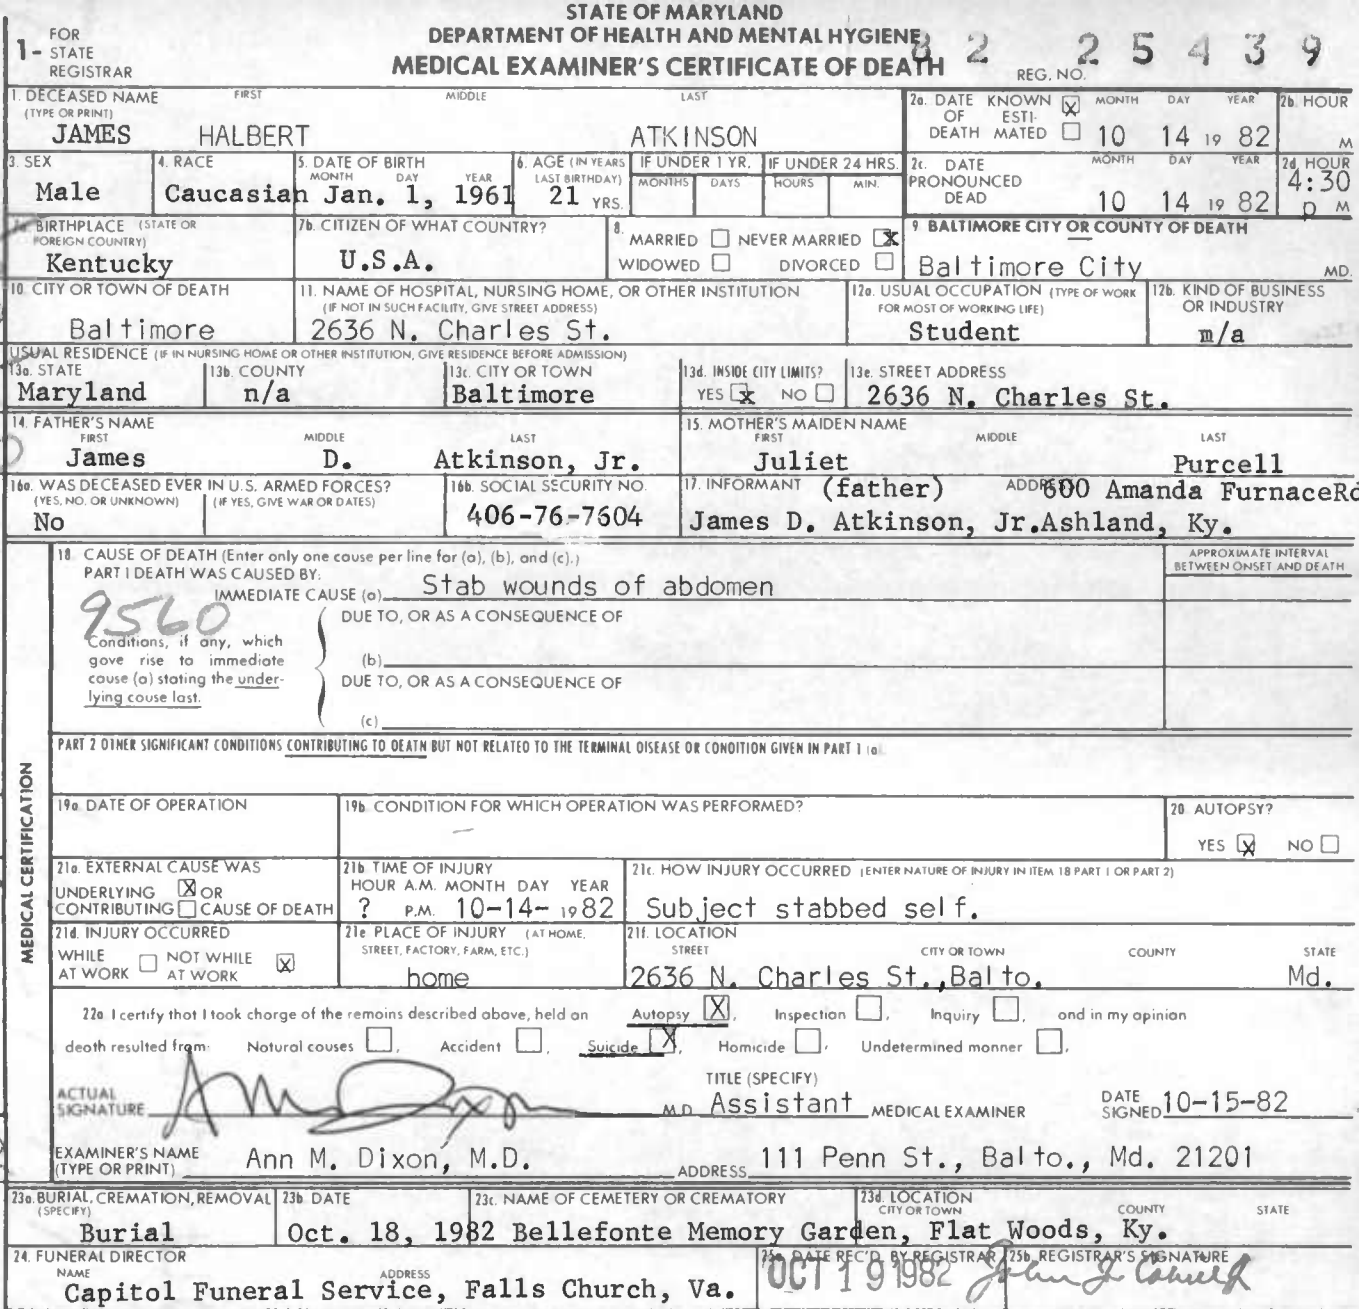 STATE OF MARYLAND
DEPARTMENT OF HEALTH AND MENTAL HYGIENE
MEDICAL EXAMINER'S CERTIFICATE OF DEATH
1- FOR STATE REGISTRAR
REG. NO. 82 25439
1. DECEASED NAME (TYPE OR PRINT) FIRST MIDDLE LAST
JAMES HALBERT ATKINSON
2a. DATE OF DEATH KNOWN [X] ESTIMATED [ ] MONTH DAY YEAR 10 14 19 82
2b. HOUR M
3. SEX Male
4. RACE Caucasian
5. DATE OF BIRTH MONTH DAY YEAR Jan. 1, 1961
6. AGE (IN YEARS LAST BIRTHDAY) 21 YRS.
IF UNDER 1 YR. MONTHS DAYS
IF UNDER 24 HRS. HOURS MIN.
2c. DATE PRONOUNCED DEAD MONTH DAY YEAR 10 14 19 82
2d. HOUR 4:30 p M
7a. BIRTHPLACE (STATE OR FOREIGN COUNTRY) Kentucky
7b. CITIZEN OF WHAT COUNTRY? U.S.A.
8. MARRIED [ ] NEVER MARRIED [X] WIDOWED [ ] DIVORCED [ ]
9. BALTIMORE CITY OR COUNTY OF DEATH
Baltimore City MD.
10. CITY OR TOWN OF DEATH Baltimore
11. NAME OF HOSPITAL, NURSING HOME, OR OTHER INSTITUTION (IF NOT IN SUCH FACILITY, GIVE STREET ADDRESS)
2636 N. Charles St.
12a. USUAL OCCUPATION (TYPE OF WORK FOR MOST OF WORKING LIFE) Student
12b. KIND OF BUSINESS OR INDUSTRY m/a
USUAL RESIDENCE (IF IN NURSING HOME OR OTHER INSTITUTION, GIVE RESIDENCE BEFORE ADMISSION)
13a. STATE Maryland
13b. COUNTY n/a
13c. CITY OR TOWN Baltimore
13d. INSIDE CITY LIMITS? YES [x] NO [ ]
13e. STREET ADDRESS 2636 N. Charles St.
14. FATHER'S NAME FIRST MIDDLE LAST
James D. Atkinson, Jr.
15. MOTHER'S MAIDEN NAME FIRST MIDDLE LAST
Juliet Purcell
16a. WAS DECEASED EVER IN U.S. ARMED FORCES? (YES, NO, OR UNKNOWN) (IF YES, GIVE WAR OR DATES)
No
16b. SOCIAL SECURITY NO. 406-76-7604
17. INFORMANT (father) ADDRESS 600 Amanda FurnaceRd
James D. Atkinson, Jr.Ashland, Ky.
MEDICAL CERTIFICATION
18. CAUSE OF DEATH (Enter only one cause per line for (a), (b), and (c).)
APPROXIMATE INTERVAL BETWEEN ONSET AND DEATH
PART I DEATH WAS CAUSED BY:
IMMEDIATE CAUSE (a) Stab wounds of abdomen
9560
DUE TO, OR AS A CONSEQUENCE OF
Conditions, if any, which gave rise to immediate cause (a) stating the underlying cause last.
(b)
DUE TO, OR AS A CONSEQUENCE OF
(c)
PART 2 OTHER SIGNIFICANT CONDITIONS CONTRIBUTING TO DEATH BUT NOT RELATED TO THE TERMINAL DISEASE OR CONDITION GIVEN IN PART 1 (a)
19a. DATE OF OPERATION
19b. CONDITION FOR WHICH OPERATION WAS PERFORMED?
20. AUTOPSY? YES [X] NO [ ]
21a. EXTERNAL CAUSE WAS UNDERLYING [X] OR CONTRIBUTING [ ] CAUSE OF DEATH
21b. TIME OF INJURY HOUR A.M. MONTH DAY YEAR
? P.M. 10-14- 1982
21c. HOW INJURY OCCURRED (ENTER NATURE OF INJURY IN ITEM 18 PART 1 OR PART 2)
Subject stabbed self.
21d. INJURY OCCURRED WHILE AT WORK [ ] NOT WHILE AT WORK [X]
21e. PLACE OF INJURY (AT HOME, STREET, FACTORY, FARM, ETC.) home
21f. LOCATION STREET CITY OR TOWN COUNTY STATE
2636 N. Charles St.,Balto. Md.
22a. I certify that I took charge of the remains described above, held an Autopsy [X], Inspection [ ], Inquiry [ ], and in my opinion
death resulted from: Natural causes [ ], Accident [ ], Suicide [X], Homicide [ ], Undetermined manner [ ].
ACTUAL SIGNATURE Ann Dixon M.D.
TITLE (SPECIFY) Assistant MEDICAL EXAMINER
DATE SIGNED 10-15-82
EXAMINER'S NAME (TYPE OR PRINT) Ann M. Dixon, M.D.
ADDRESS 111 Penn St., Balto., Md. 21201
23a. BURIAL, CREMATION, REMOVAL (SPECIFY) Burial
23b. DATE Oct. 18, 1982
23c. NAME OF CEMETERY OR CREMATORY Bellefonte Memory Garden,
23d. LOCATION CITY OR TOWN COUNTY STATE Flat Woods, Ky.
24. FUNERAL DIRECTOR NAME ADDRESS
Capitol Funeral Service, Falls Church, Va.
25a. DATE REC'D. BY REGISTRAR OCT 19 1982
25b. REGISTRAR'S SIGNATURE John J.